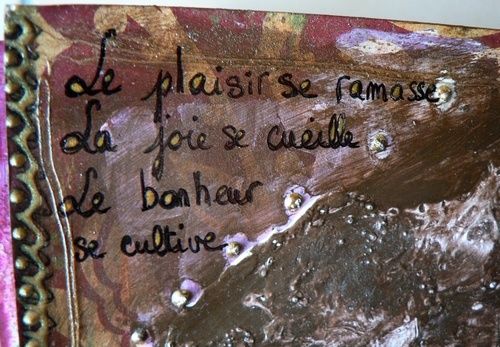 Le plaisir se ramasse
La joie se cueille
Le bonheur
se cultive